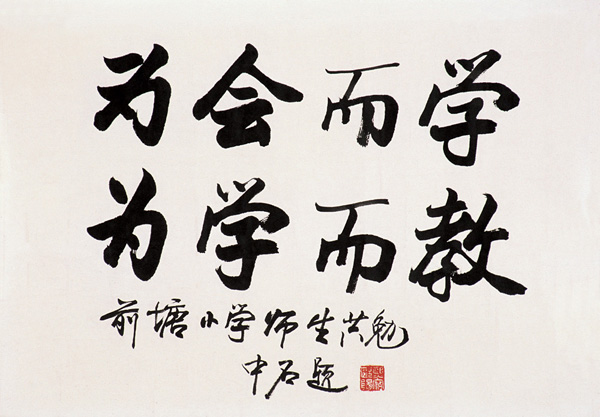 为会而学
为学而教
前塘小学师生共勉
中石题